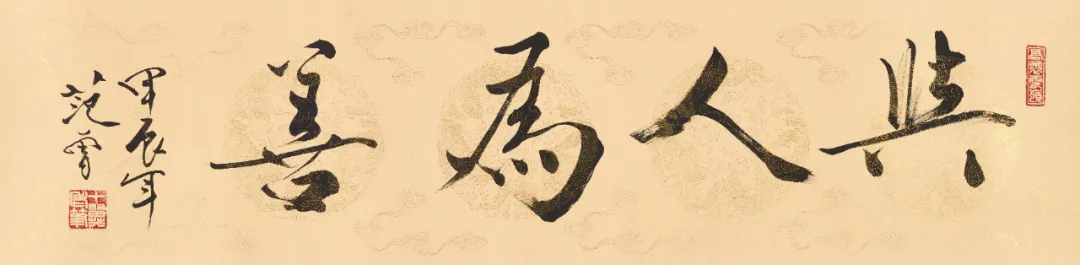 與人為善
甲辰年
范曾